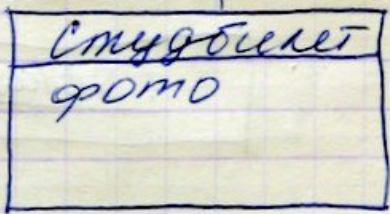 Студбилет
фото